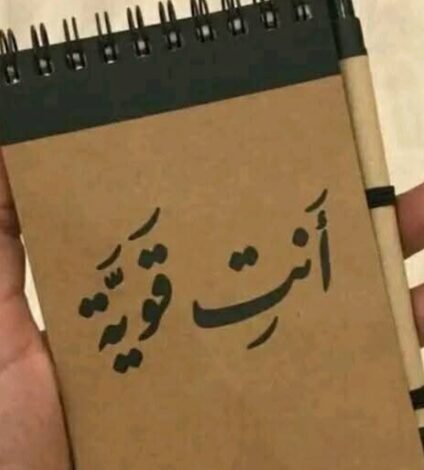 أَنتِ قَويَّة